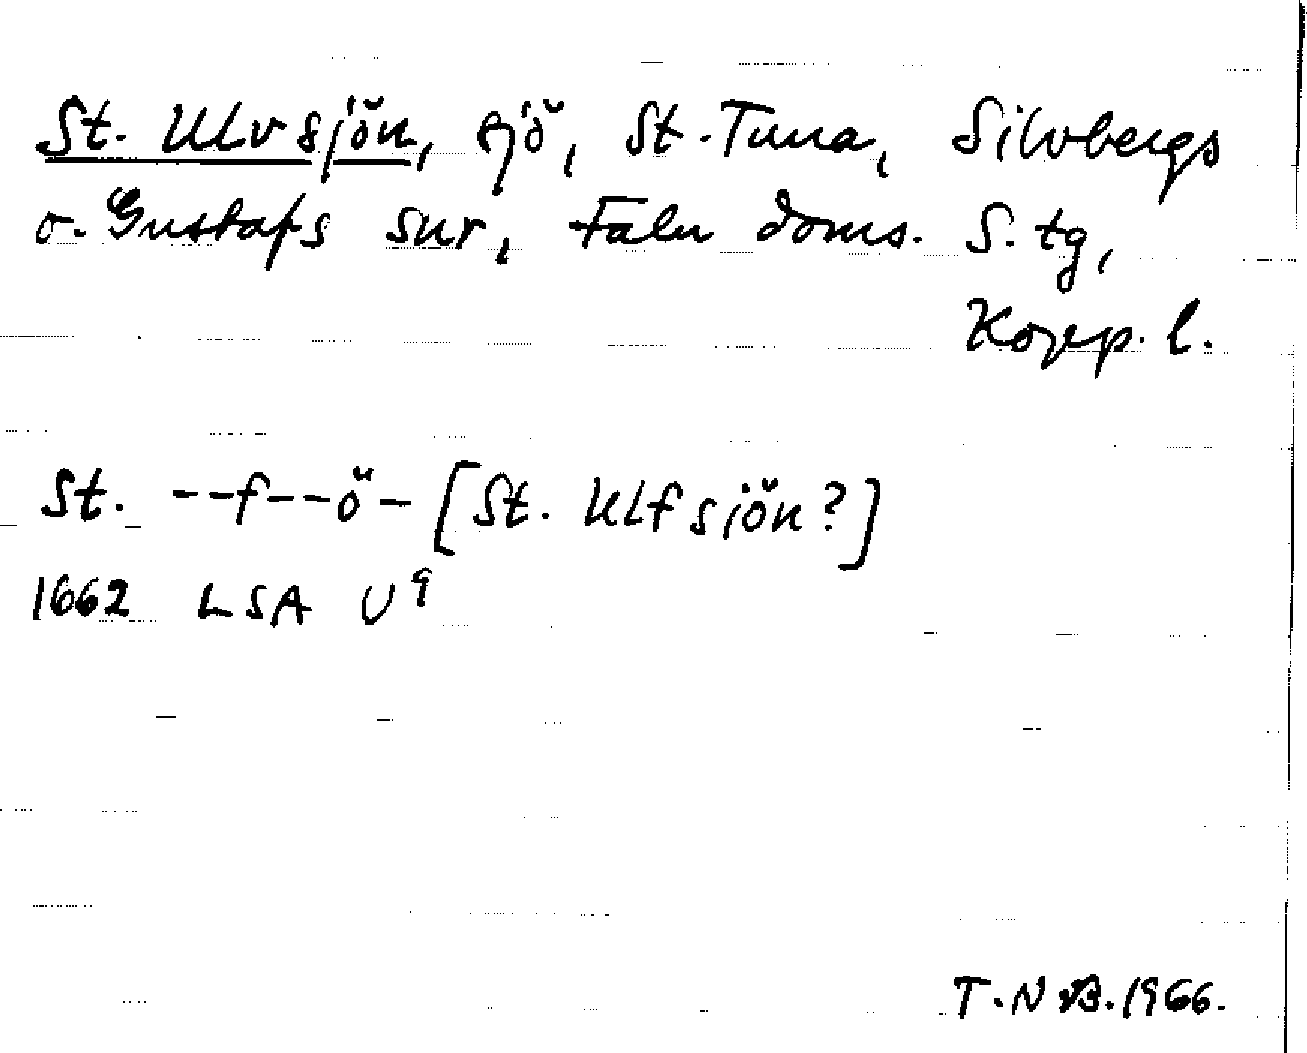 St. Ulvsjön, sjö, St. Tuna, Silvbergs
o. Gustafs snr, Falu doms. S. tg,
Kopp. l.
St. --f--ö- [St. Ulfsjön?]
1662 LSA U9
T.N.B. 1966.